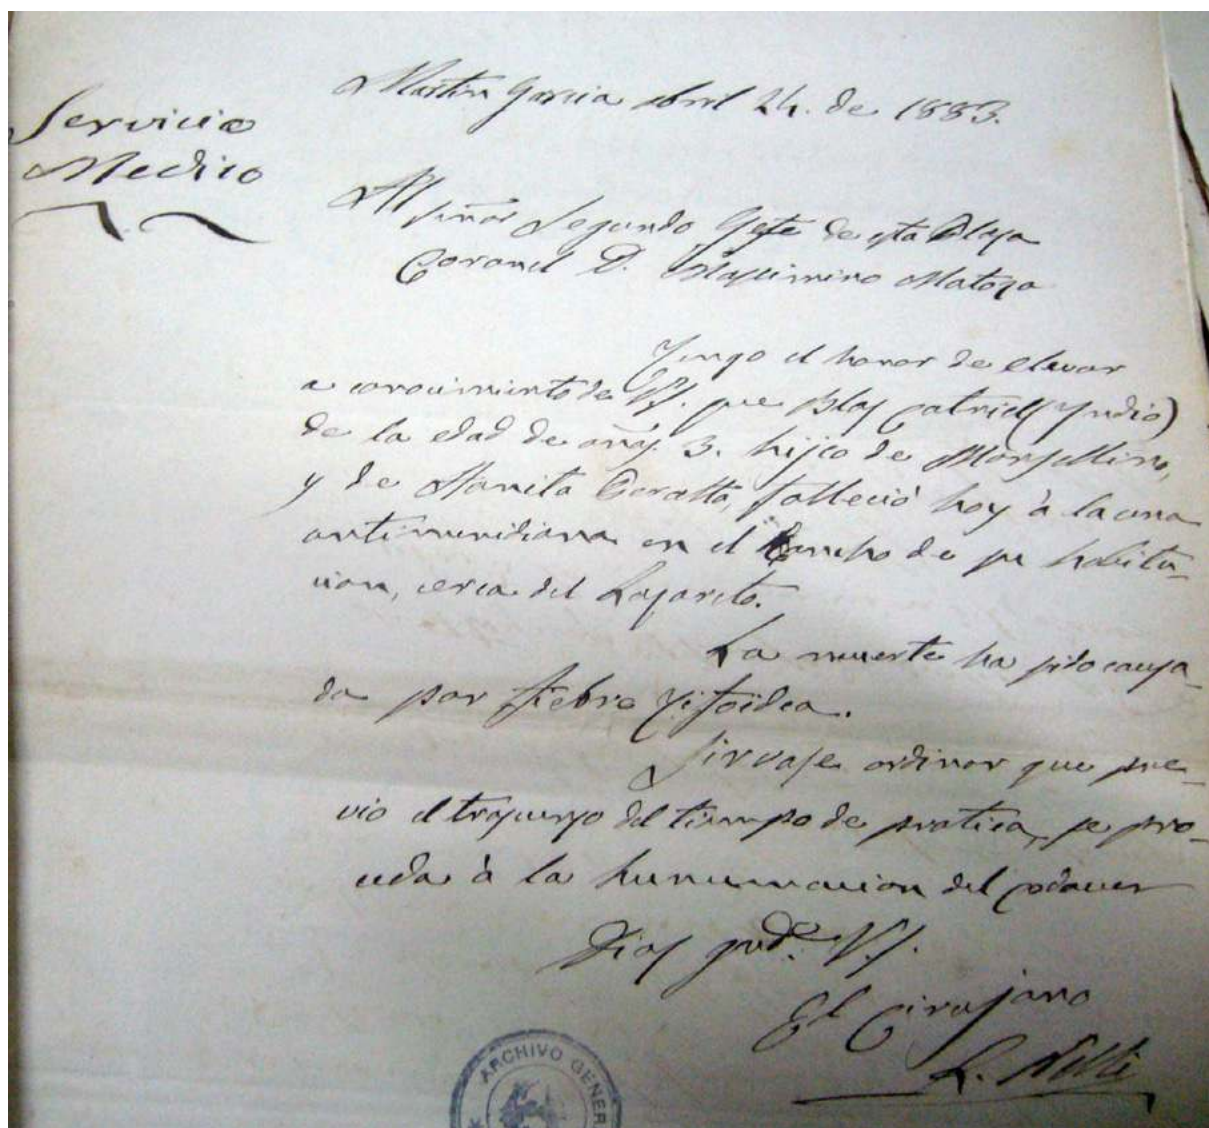 Servicio
Medico
Martin Garcia abril 24. de 1883.
Al señor Segundo Gefe de esta Plaza
Coronel D. Maximino Matoso
Tengo el honor de elevar
a conocimiento de V.S. que Blas Catriel (Yndio)
de la edad de años 3. hijo de Marsellino,
y de Manita Peralta, falleció hoy à la una
antimeridiana en el Rancho de su habita-
cion, cerca del Lazareto.
La muerte ha sido causa-
da por fiebre tifoidea.
Sirvase ordinar que pre-
vio el trascurso del tiempo de pratica, se pro-
ceda à la hunumacion del cadaver
Dios gude. V.S.
El Cirujano
ARCHIVO GENER